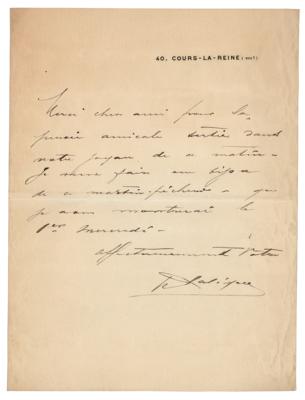 40. COURS-LA-REINE (VIIIᵉ)
Merci cher ami pour la
pensée amicale sertie dans
notre joyau de ce matin -
Je vous fais un bijou
de ce martin-pêcheur - que
je vous montrerai le
1er mercredi -
affectueusement Votre
R Lalique